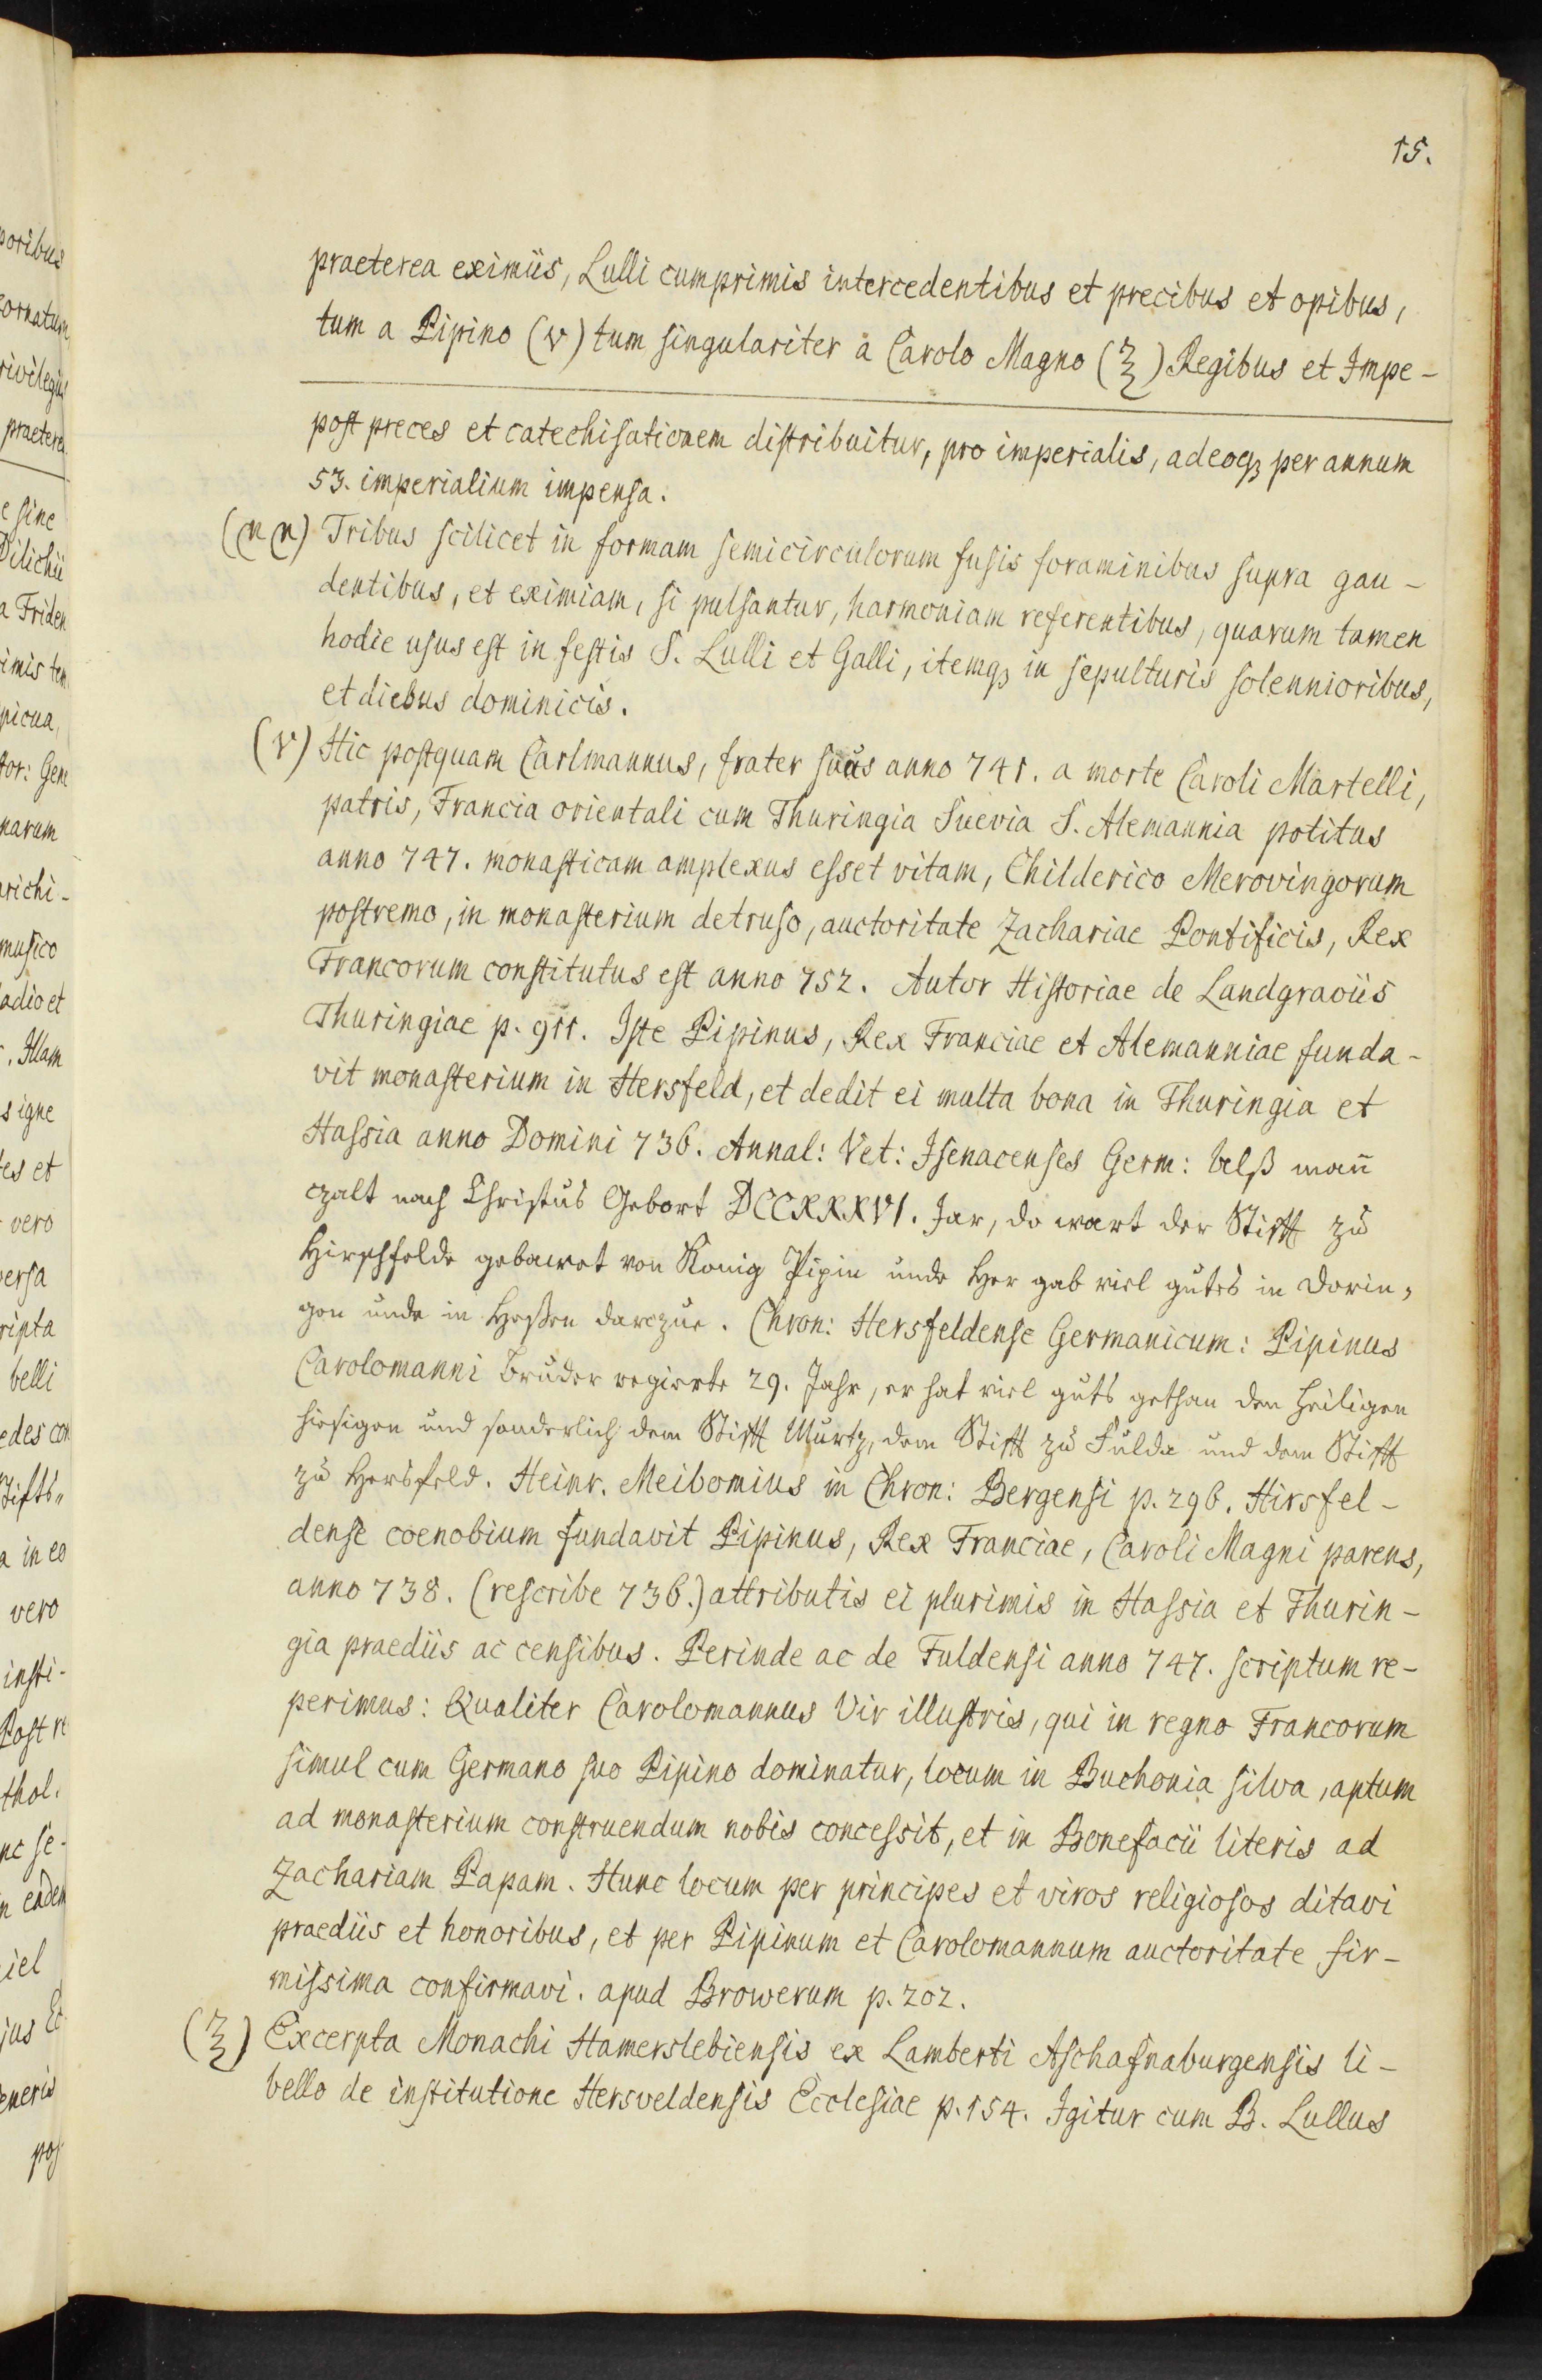 15.
praeterea eximiis, Lulli cumprimis intercedentibus et precibus et opibus,
tum a Pipino (v) tum singulariter a Carolo Magno (ξ) Regibus et Impe-
post preces et catechisationem distribuitur, pro imperialis, adeoq₃ per annum
53. imperialium impensa.
(nn) Tribus scilicet in formam semicirculorum fusis foraminibus supra gau-
dentibus, et eximiam, si pulsantur, harmoniam referentibus, quarum tamen
hodie usus est in festis S. Lulli et Galli, itemq₃ in sepulturis solennioribus,
et diebus dominicis.
(v) Hic postquam Carlmannus, frater suus anno 741. a morte Caroli Martelli,
patris, Francia orientali cum Thuringia Suevia S. Alemannia potitus
anno 747. monasticam amplexus esset vitam, Childerico Merovingorum
postremo, in monasterium detruso, auctoritate Zachariae Pontificis, Rex
Francorum constitutus est anno 752. Autor Historiae de Landgraviis
Thuringiae p. 911. Iste Pipinus, Rex Franciae et Alemanniae funda-
vit monasterium in Hersfeld, et dedit ei multa bona in Thuringia et
Hassia anno Domini 736. Annal: Vet: Isenacenses Germ: Alß man̄
czalt nach Christus Gebort DCCXXXVI. Jar, do wart der Stifft zu
Hirschfelde gebawet von Konig Pipin unde Her gab viel gutes in Dorin-
gen unde in Heßen darczue. Chron: Hersfeldense Germanicum: Pipinus
Carolomanni Bruder regierte 29. Jahr, er hat viel guts gethan den Heiligen
hiesigen und sonderlich dem Stifft Wurtz, dem Stifft zu Fulda und dem Stifft
zu Hersfeld. Heinr. Meibomius in Chron: Bergensi p. 296. Hirsfel-
dense coenobium fundavit Pipinus, Rex Franciae, Caroli Magni parens,
anno 738. (rescribe 736.) attributis ei plurimis in Hassia et Thurin-
gia praediis ac censibus. Perinde ac de Fuldensi anno 747. scriptum re-
perimus: Qualiter Carolomannus Vir illustris, qui in regno Francorum
simul cum Germano suo Pipino dominatur, locum in Buchonia silva, aptum
ad monasterium construendum nobis concessit, et in Bonefacii literis ad
Zachariam Papam. Hunc locum per principes et viros religiosos ditavi
praediis et honoribus, et per Pipinum et Carolomannum auctoritate fir-
missima confirmavi. apud Browerum p. 202.
(ξ) Excerpta Monachi Hamerslebiensis ex Lamberti Aschafnaburgensis li-
bello de institutione Hersveldensis Ecclesiae p. 154. Igitur cum B. Lullus